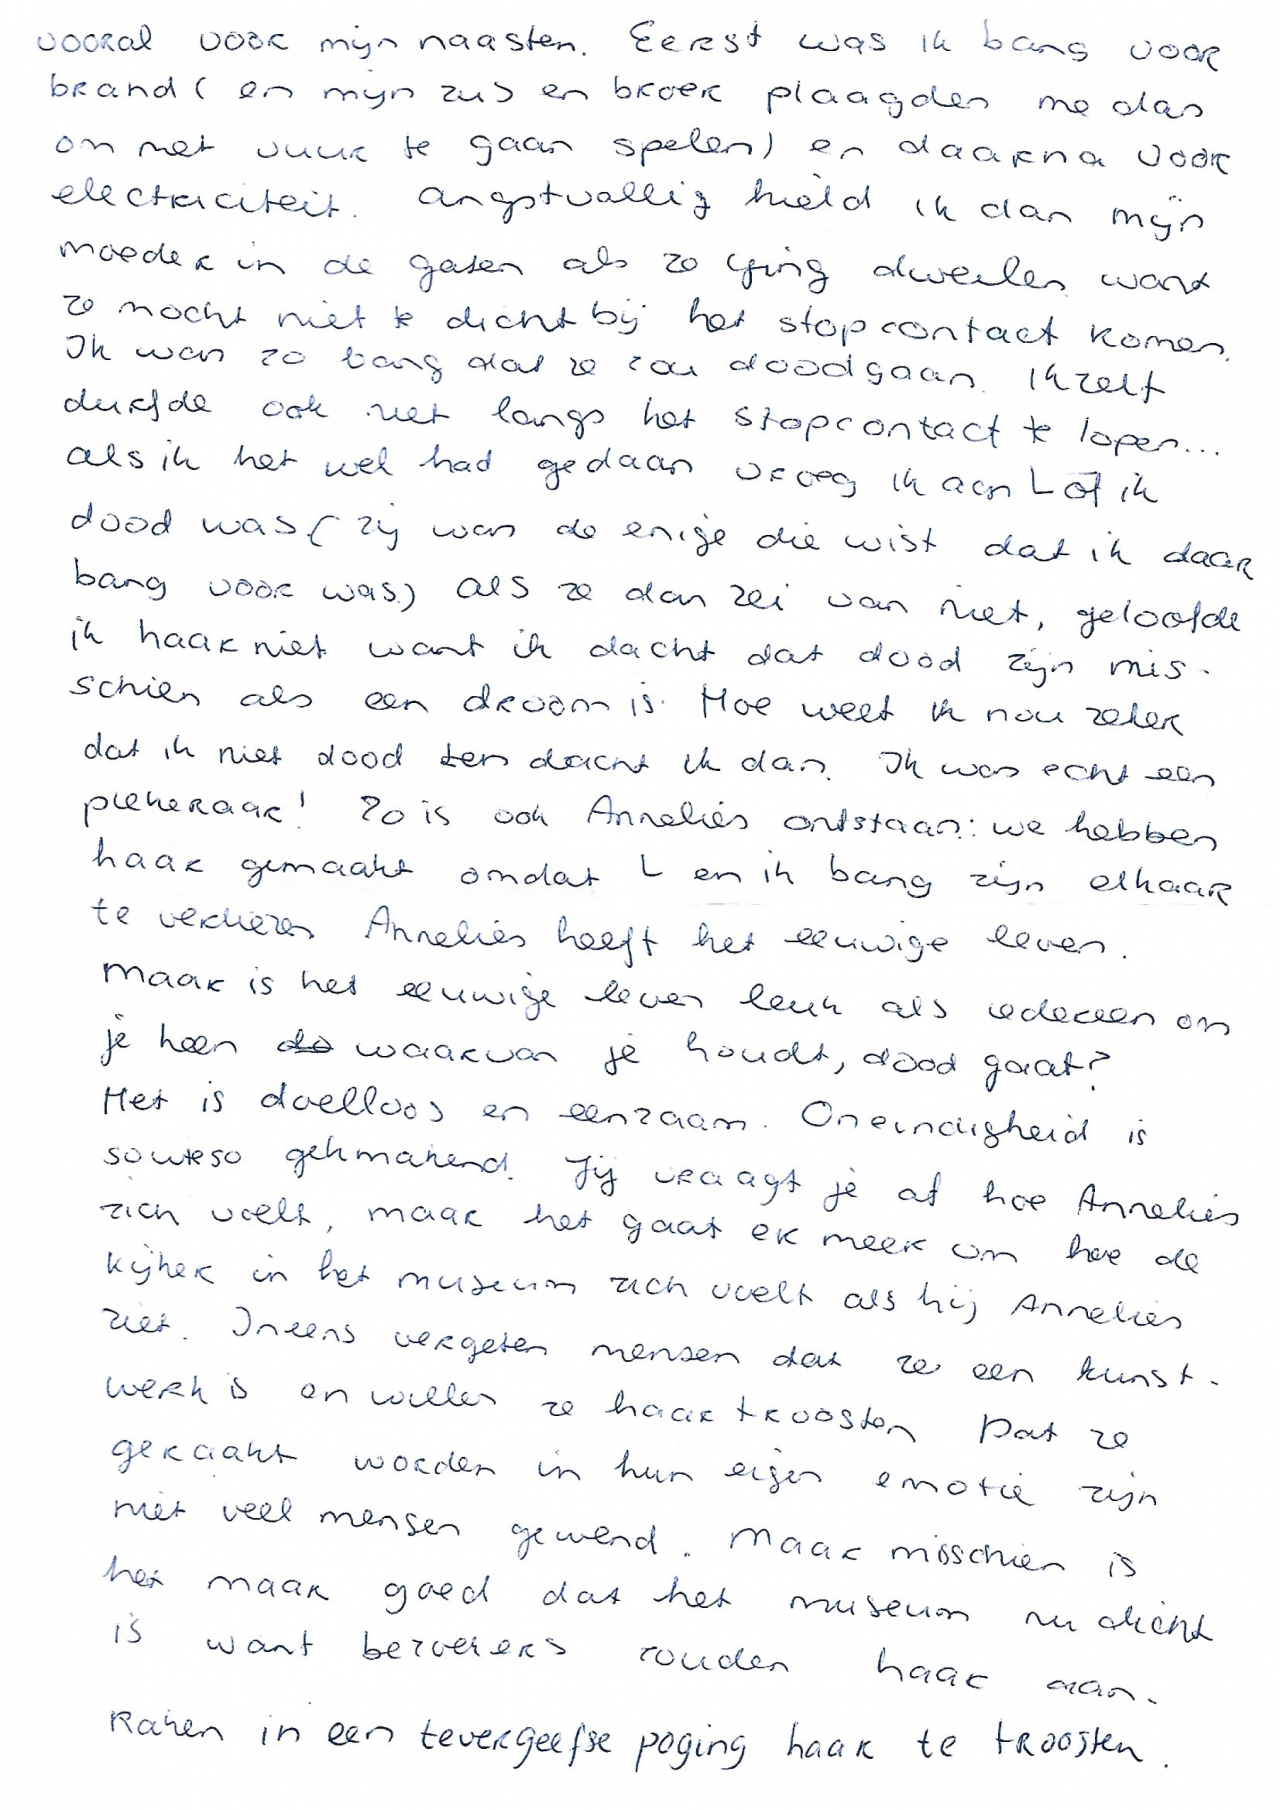 vooral voor mijn naasten. Eerst was ik bang voor
brand (en mijn zus en broer plaagden me dan
om met vuur te gaan spelen) en daarna voor
electriciteit. Angstvallig hield ik dan mijn
moeder in de gaten als ze ging dweilen want
ze mocht niet te dicht bij het stopcontact komen.
Ik was zo bang dat ze zou doodgaan. Ik zelf
durfde ook niet langs het stopcontact te lopen...
als ik het wel had gedaan vroeg ik aan L of ik
dood was (zij was de enige die wist dat ik daar
bang voor was.) Als ze dan zei van niet, geloofde
ik haar niet want ik dacht dat dood zijn mis-
schien als een droom is. Hoe weet ik nou zeker
dat ik niet dood ben dacht ik dan. Ik was echt een
piekeraar! Zo is ook Annelies ontstaan: we hebben
haar gemaakt omdat L en ik bang zijn elkaar
te verliezen Annelies heeft het eeuwige leven.
Maar is het eeuwige leven leuk als iedereen om
je heen do waarvan je houdt, dood gaat?
Het is doelloos en eenzaam. Oneindigheid is
sowieso gekmakend. Jij vraagt je af hoe Annelies
zich voelt, maar het gaat er meer om hoe de
kijker in het museum zich voelt als hij Annelies
ziet. Ineens vergeten mensen dat ze een kunst-
werk is en willen ze haar troosten Dat ze
geraakt worden in hun eigen emotie zijn
niet veel mensen gewend. Maar misschien is
het maar goed dat het museum nu dicht
is want bezoekers zouden haar aan-
raken in een tevergeefse poging haar te troosten.